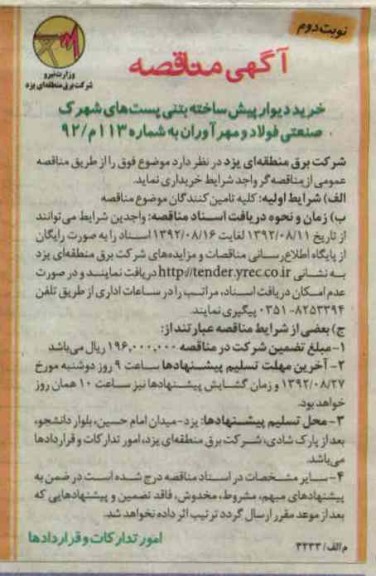 نوبت دوم
وزارت نیرو
شرکت برق منطقه‌ای یزد
آگهی مناقصه
خرید دیوار پیش ساخته بتنی پست‌های شهرک
صنعتی فولاد و مهرآوران به شماره ۱۱۳م/۹۲
شرکت برق منطقه‌ای یزد در نظر دارد موضوع فوق را از طریق مناقصه
عمومی از مناقصه‌گر واجد شرایط خریداری نماید.
الف) شرایط اولیه: کلیه تامین کنندگان موضوع مناقصه
ب) زمان و نحوه دریافت اسناد مناقصه: واجدین شرایط می‌توانند
از تاریخ ۱۳۹۲/۰۸/۱۱ لغایت ۱۳۹۲/۰۸/۱۶ اسناد را به صورت رایگان
از پایگاه اطلاع‌رسانی مناقصات و مزایده‌های شرکت برق منطقه‌ای یزد
به نشانی http://tender.yrec.co.ir دریافت نمایند و در صورت
عدم امکان دریافت اسناد، مراتب را در ساعات اداری از طریق تلفن
۸۲۵۳۳۹۴-۰۳۵۱ پیگیری نمایند.
ج) بعضی از شرایط مناقصه عبارتند از:
۱- مبلغ تضمین شرکت در مناقصه ۱۹۶,۰۰۰,۰۰۰ ریال می‌باشد
۲- آخرین مهلت تسلیم پیشنهادها ساعت ۹ روز دوشنبه مورخ
۱۳۹۲/۰۸/۲۷ و زمان گشایش پیشنهادها نیز ساعت ۱۰ همان روز
خواهد بود.
۳- محل تسلیم پیشنهادها: یزد-میدان امام حسین، بلوار دانشجو،
بعد از پارک شادی، شرکت برق منطقه‌ای یزد، امور تدارکات و قراردادها
می‌باشد.
۴- سایر مشخصات در اسناد مناقصه درج شده است در ضمن به
پیشنهادهای مبهم، مشروط، مخدوش، فاقد تضمین و پیشنهادهایی که
بعد از موعد مقرر ارسال گردد ترتیب اثر داده نخواهد شد.
امور تدارکات و قراردادها
م الف/۳۲۳۳